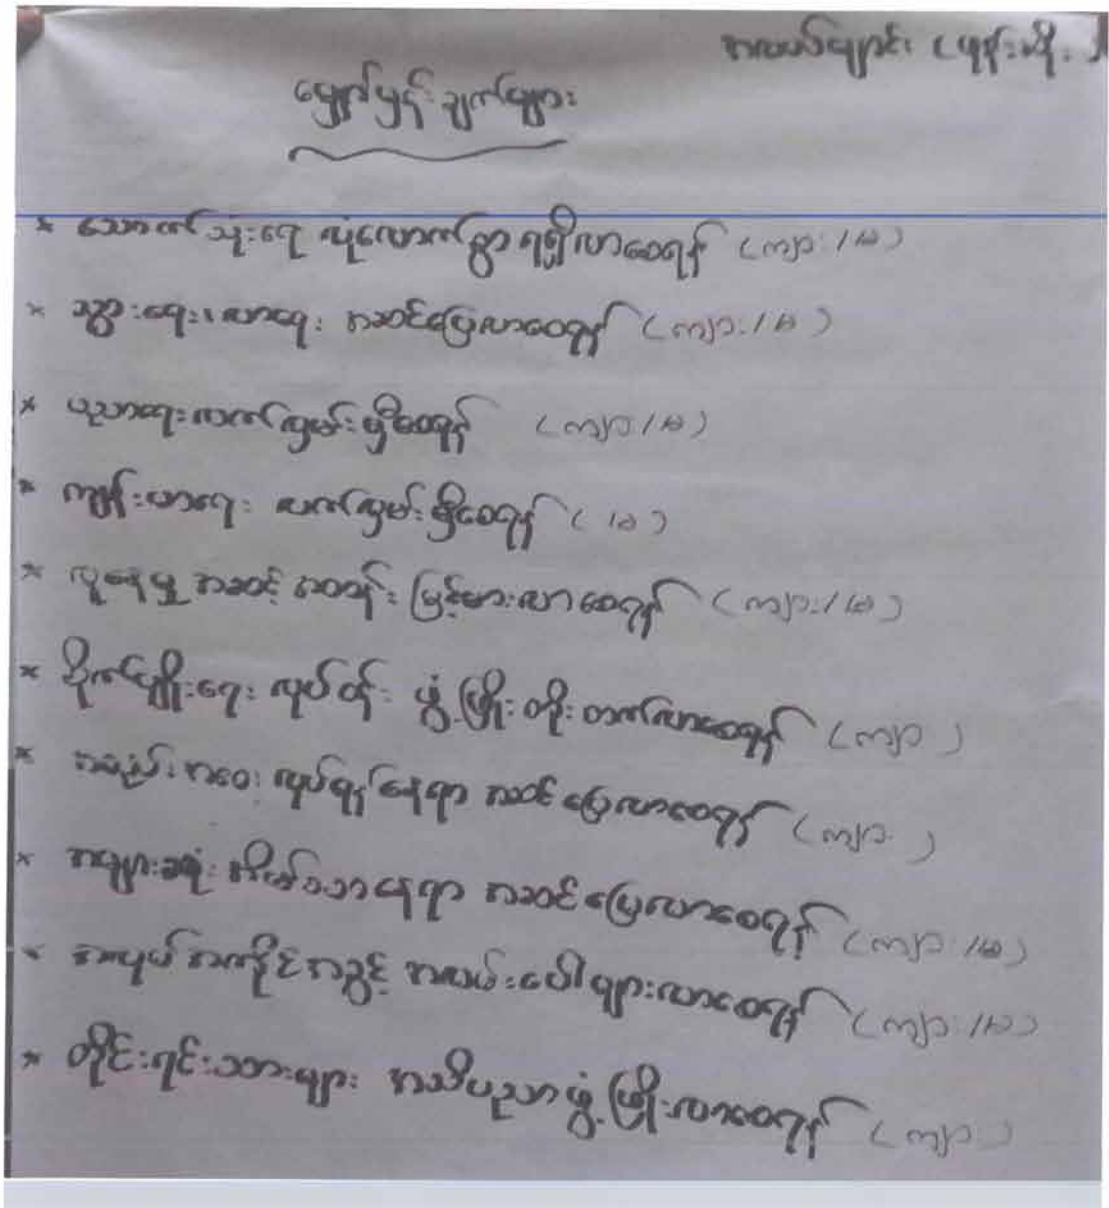 အလယ်ချောင်း (ဖုန်းဆိုး)
မျှော်မှန်းချက်များ
* သောက်သုံးရေ လုံလောက်စွာ ရရှိလာစေရန် (ကျား/မ)
* သွားရေးလာရေး အဆင်ပြေလာစေရန် (ကျား/မ)
* ပညာရေးလက်လှမ်းမှီစေရန် (ကျား/မ)
* ကျန်းမာရေး လက်လှမ်းမှီစေရန် ( /မ)
* လူနေမှု အဆင့် အတန်း မြင့်မားလာစေရန် (ကျား/မ)
* စိုက်ပျိုးရေး လုပ်ငန်း ဖွံ့ဖြိုး တိုးတက်လာစေရန် (ကျား )
* အစည်းအဝေး လုပ်ရန်နေရာ အဆင်ပြေလာစေရန် (ကျား )
* အများသုံး အိမ်သာနေရာ အဆင်ပြေလာစေရန် (ကျား/မ)
* အလုပ်အကိုင်အခွင့် အလမ်းပေါများလာစေရန် (ကျား/မ)
* တိုင်းရင်းသားများ အသိပညာဖွံ့ဖြိုးလာစေရန် (ကျား )